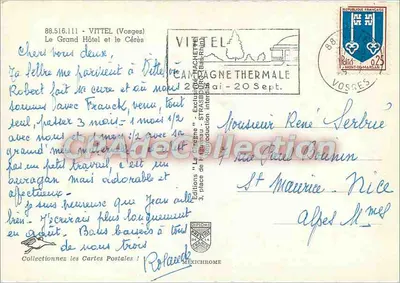 88.516.111 - VITTEL (Vosges)
Le Grand Hôtel et le Cérès
Chers vous deux,
Ta lettre me parvient à Vittel où
Robert fait sa cure et où nous
sommes avec Franck, venu, tout
seul, passer 3 mois - 1 mois 1/2
avec nous 1 mois 1/2 avec sa
grand'mère
pas un petit travail, c'est un
ouragan mais adorable et
affectueux -
Je suis heureuse que Jean aille
bien. J'écrirai plus longuement
en août. Bons baisers à tous
de nous trois
Collectionnez les Cartes Postales !
MEXICHROME
VITTEL
CAMPAGNE THERMALE
20 Mai - 20 Sept.
88
VOSGES
REPUBLIQUE FRANÇAISE
0,25
MONT-DE-MARSAN
Editions "La Cigogne"
3, place de
STRASBOURG
HACHETTE
Reproduction interdite
Monsieur René
St Maurice - Nice
Alpes Mmes
CPAdeCollection